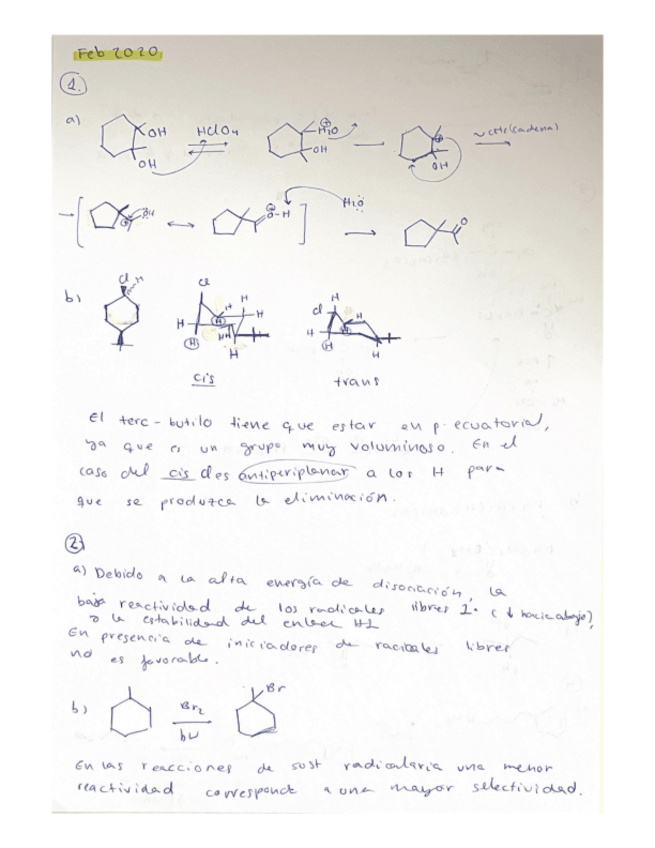 Feb 2020
1.
a)
OH HClO4 H2O
OH OH OH
OH H2O
O-H
O
b) Cl H Cl H H H H H HH H
Cl H H H H H H
cis trans
El terc-butilo tiene que estar en p. ecuatorial,
ya que es un grupo muy voluminoso. En el
caso del cis Cl es antiperiplanar a los H para
que se produzca la eliminación.
2
a) Debido a la alta energía de disociación, la
baja reactividad de los radicales libres I· (↓ hacia abajo),
o la estabilidad del enlace HI
En presencia de iniciadores de radicales libres
no es favorable.
b) Br2 Br
hν
En las reacciones de sust radicalaria una menor
reactividad corresponde a una mayor selectividad.